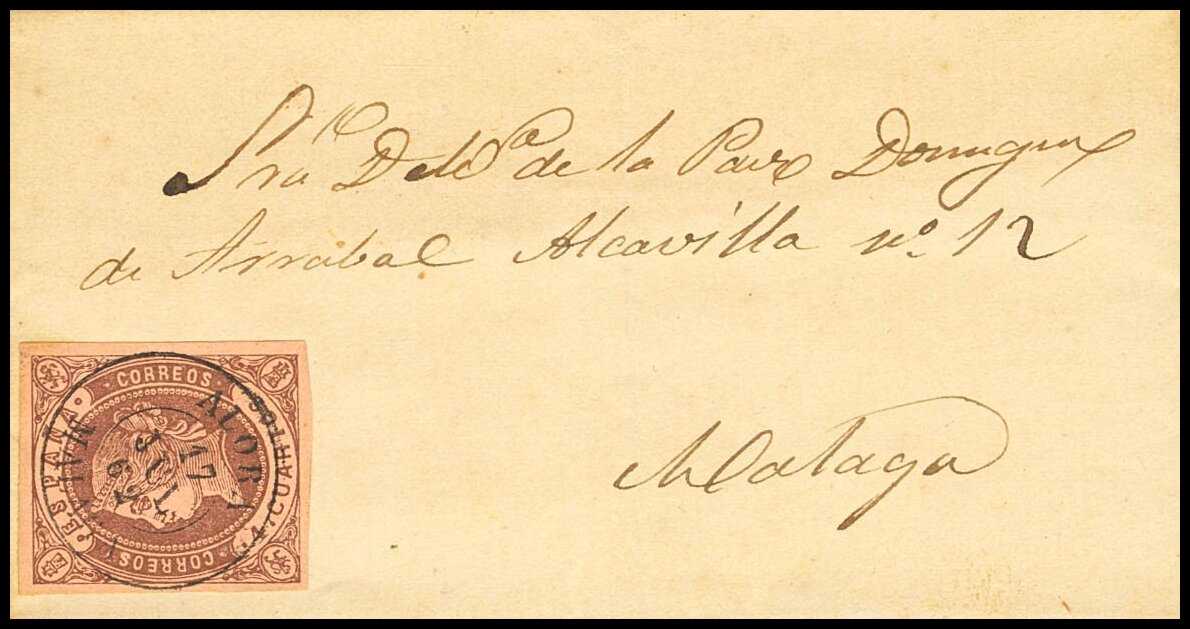 Sra D de la Paz Dominguez
de Arrabal Alcavilla nº 12
Malaga
CORREOS
ESPAÑA
4 CUARTOS
CORREOS
ALORA
17
JUL
62
MALAGA